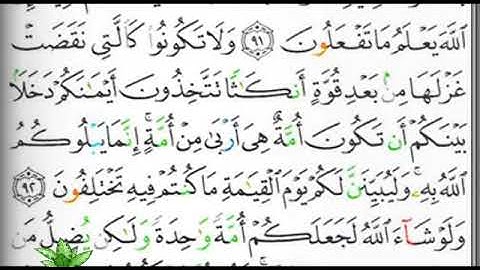 ٱللَّهَ يَعْلَمُ مَا تَفْعَلُونَ ٩١ وَلَا تَكُونُوا۟ كَٱلَّتِى نَقَضَتْ
غَزْلَهَا مِنۢ بَعْدِ قُوَّةٍ أَنكَٰثًا تَتَّخِذُونَ أَيْمَٰنَكُمْ دَخَلًۢا
بَيْنَكُمْ أَن تَكُونَ أُمَّةٌ هِىَ أَرْبَىٰ مِنْ أُمَّةٍ ۚ إِنَّمَا يَبْلُوكُمُ
ٱللَّهُ بِهِۦ ۚ وَلَيُبَيِّنَنَّ لَكُمْ يَوْمَ ٱلْقِيَٰمَةِ مَا كُنتُمْ فِيهِ تَخْتَلِفُونَ ٩٢
وَلَوْ شَآءَ ٱللَّهُ لَجَعَلَكُمْ أُمَّةً وَٰحِدَةً وَلَٰكِن يُضِلُّ مَن